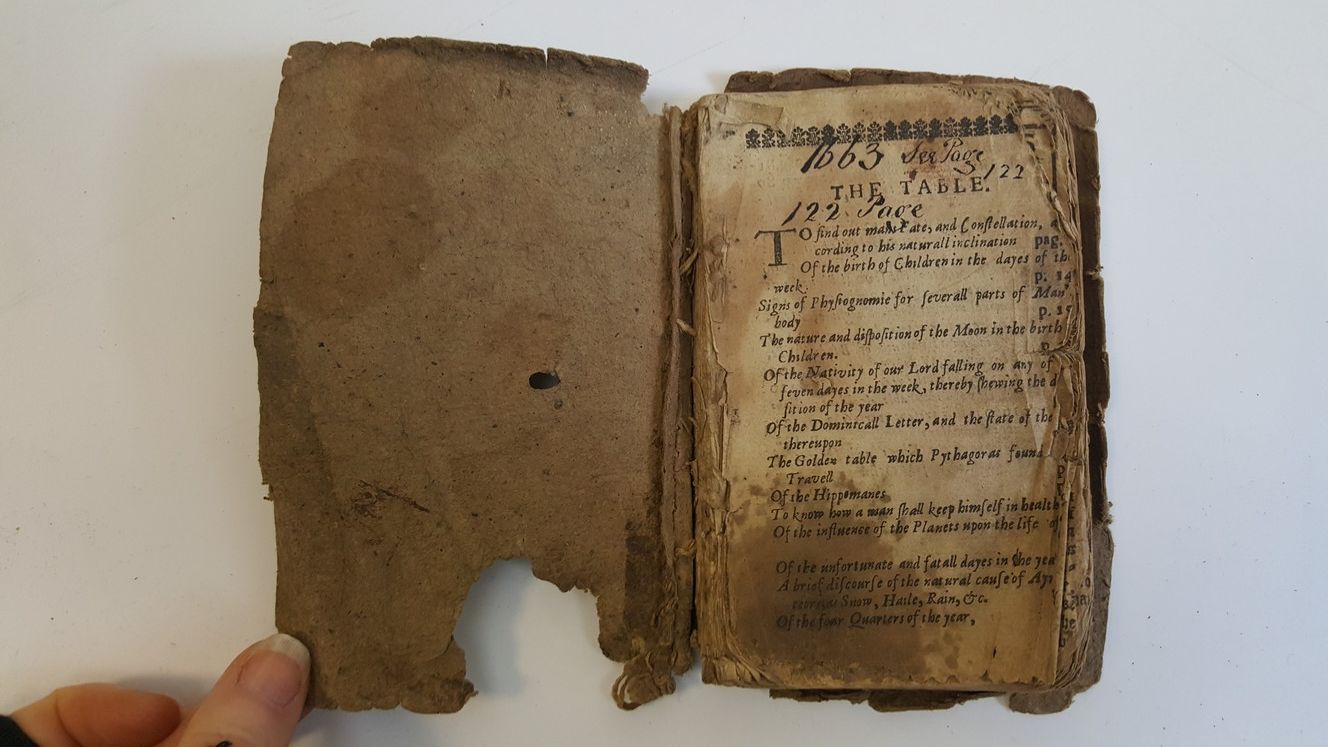 1663 See Page
122
THE TABLE.
122 Page
TO find out mans Fate, and Conſtellation, a
cording to his naturall inclination pag.
Of the birth of Children in the dayes of the
week. p. 14
Signs of Phyſiognomie for ſeverall parts of Man
body p. 15
The nature and diſpoſition of the Moon in the birth
Children.
Of the Nativity of our Lord falling on any of
ſeven dayes in the week, thereby ſhewing the d
ſition of the year
Of the Dominicall Letter, and the ſtate of the
thereupon
The Golden table which Pythagoras found
Travell
Of the Hippomanes
To know how a man ſhall keep himſelf in health
Of the influence of the Planets upon the life of
Of the unfortunate and fatall dayes in the yea
A brief diſcourſe of the natural cauſe of
Snow, Haile, Rain, &c.
Of the four Quarters of the year,